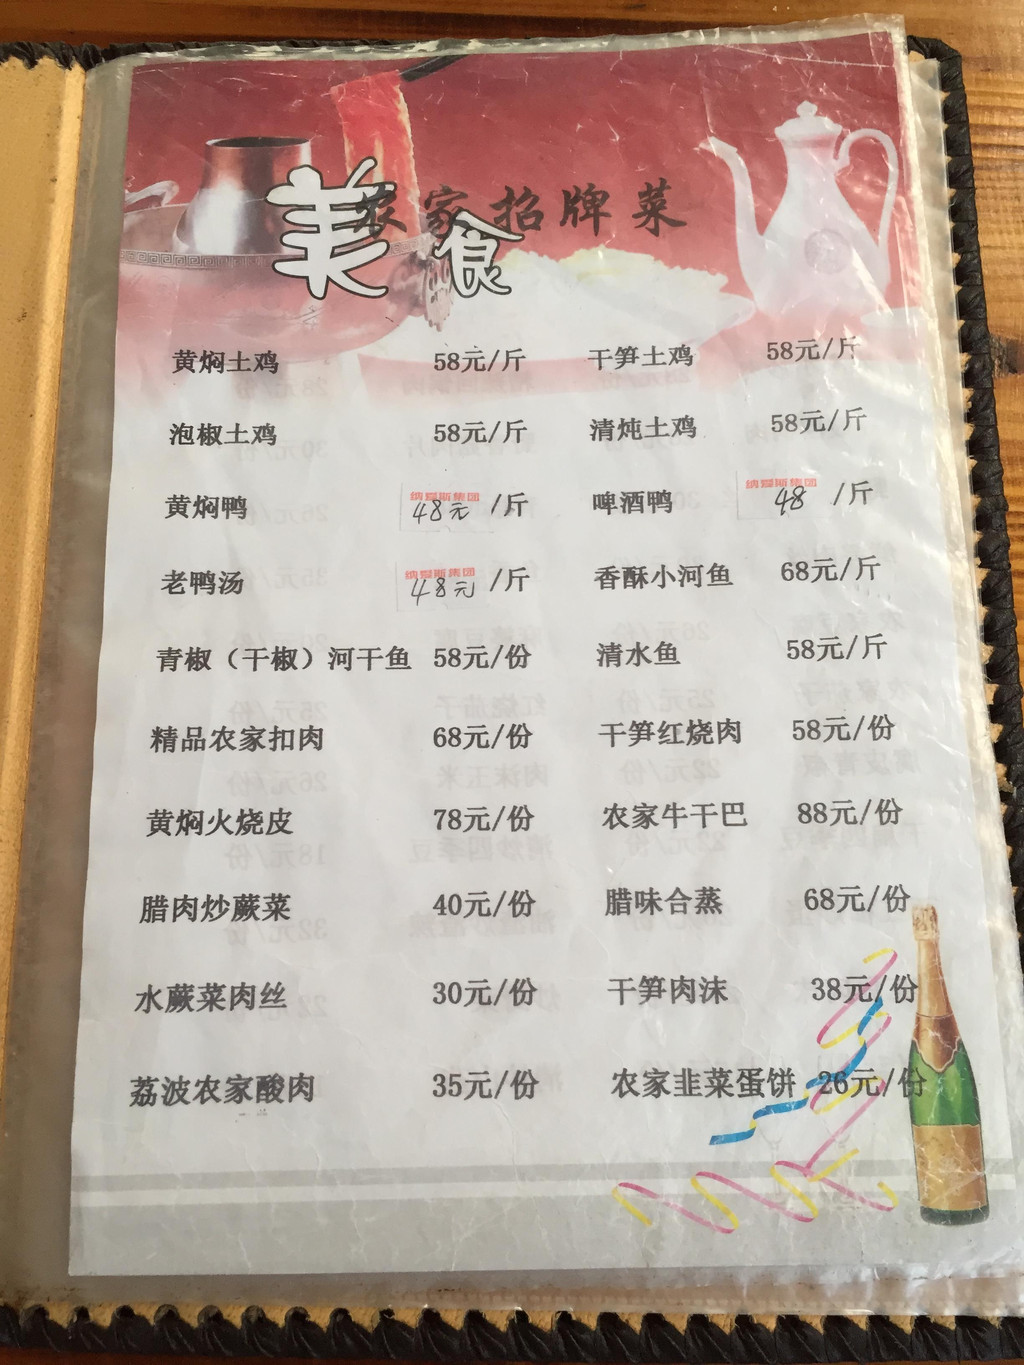 农家招牌菜
美食
黄焖土鸡 58元/斤 干笋土鸡 58元/斤
泡椒土鸡 58元/斤 清炖土鸡 58元/斤
纳爱斯集团 纳爱斯集团
黄焖鸭 48元 /斤 啤酒鸭 48 /斤
纳爱斯集团
老鸭汤 48元 /斤 香酥小河鱼 68元/斤
青椒（干椒）河干鱼 58元/份 清水鱼 58元/斤
精品农家扣肉 68元/份 干笋红烧肉 58元/份
黄焖火烧皮 78元/份 农家牛干巴 88元/份
腊肉炒蕨菜 40元/份 腊味合蒸 68元/份
水蕨菜肉丝 30元/份 干笋肉沫 38元/份
荔波农家酸肉 35元/份 农家韭菜蛋饼 26元/份